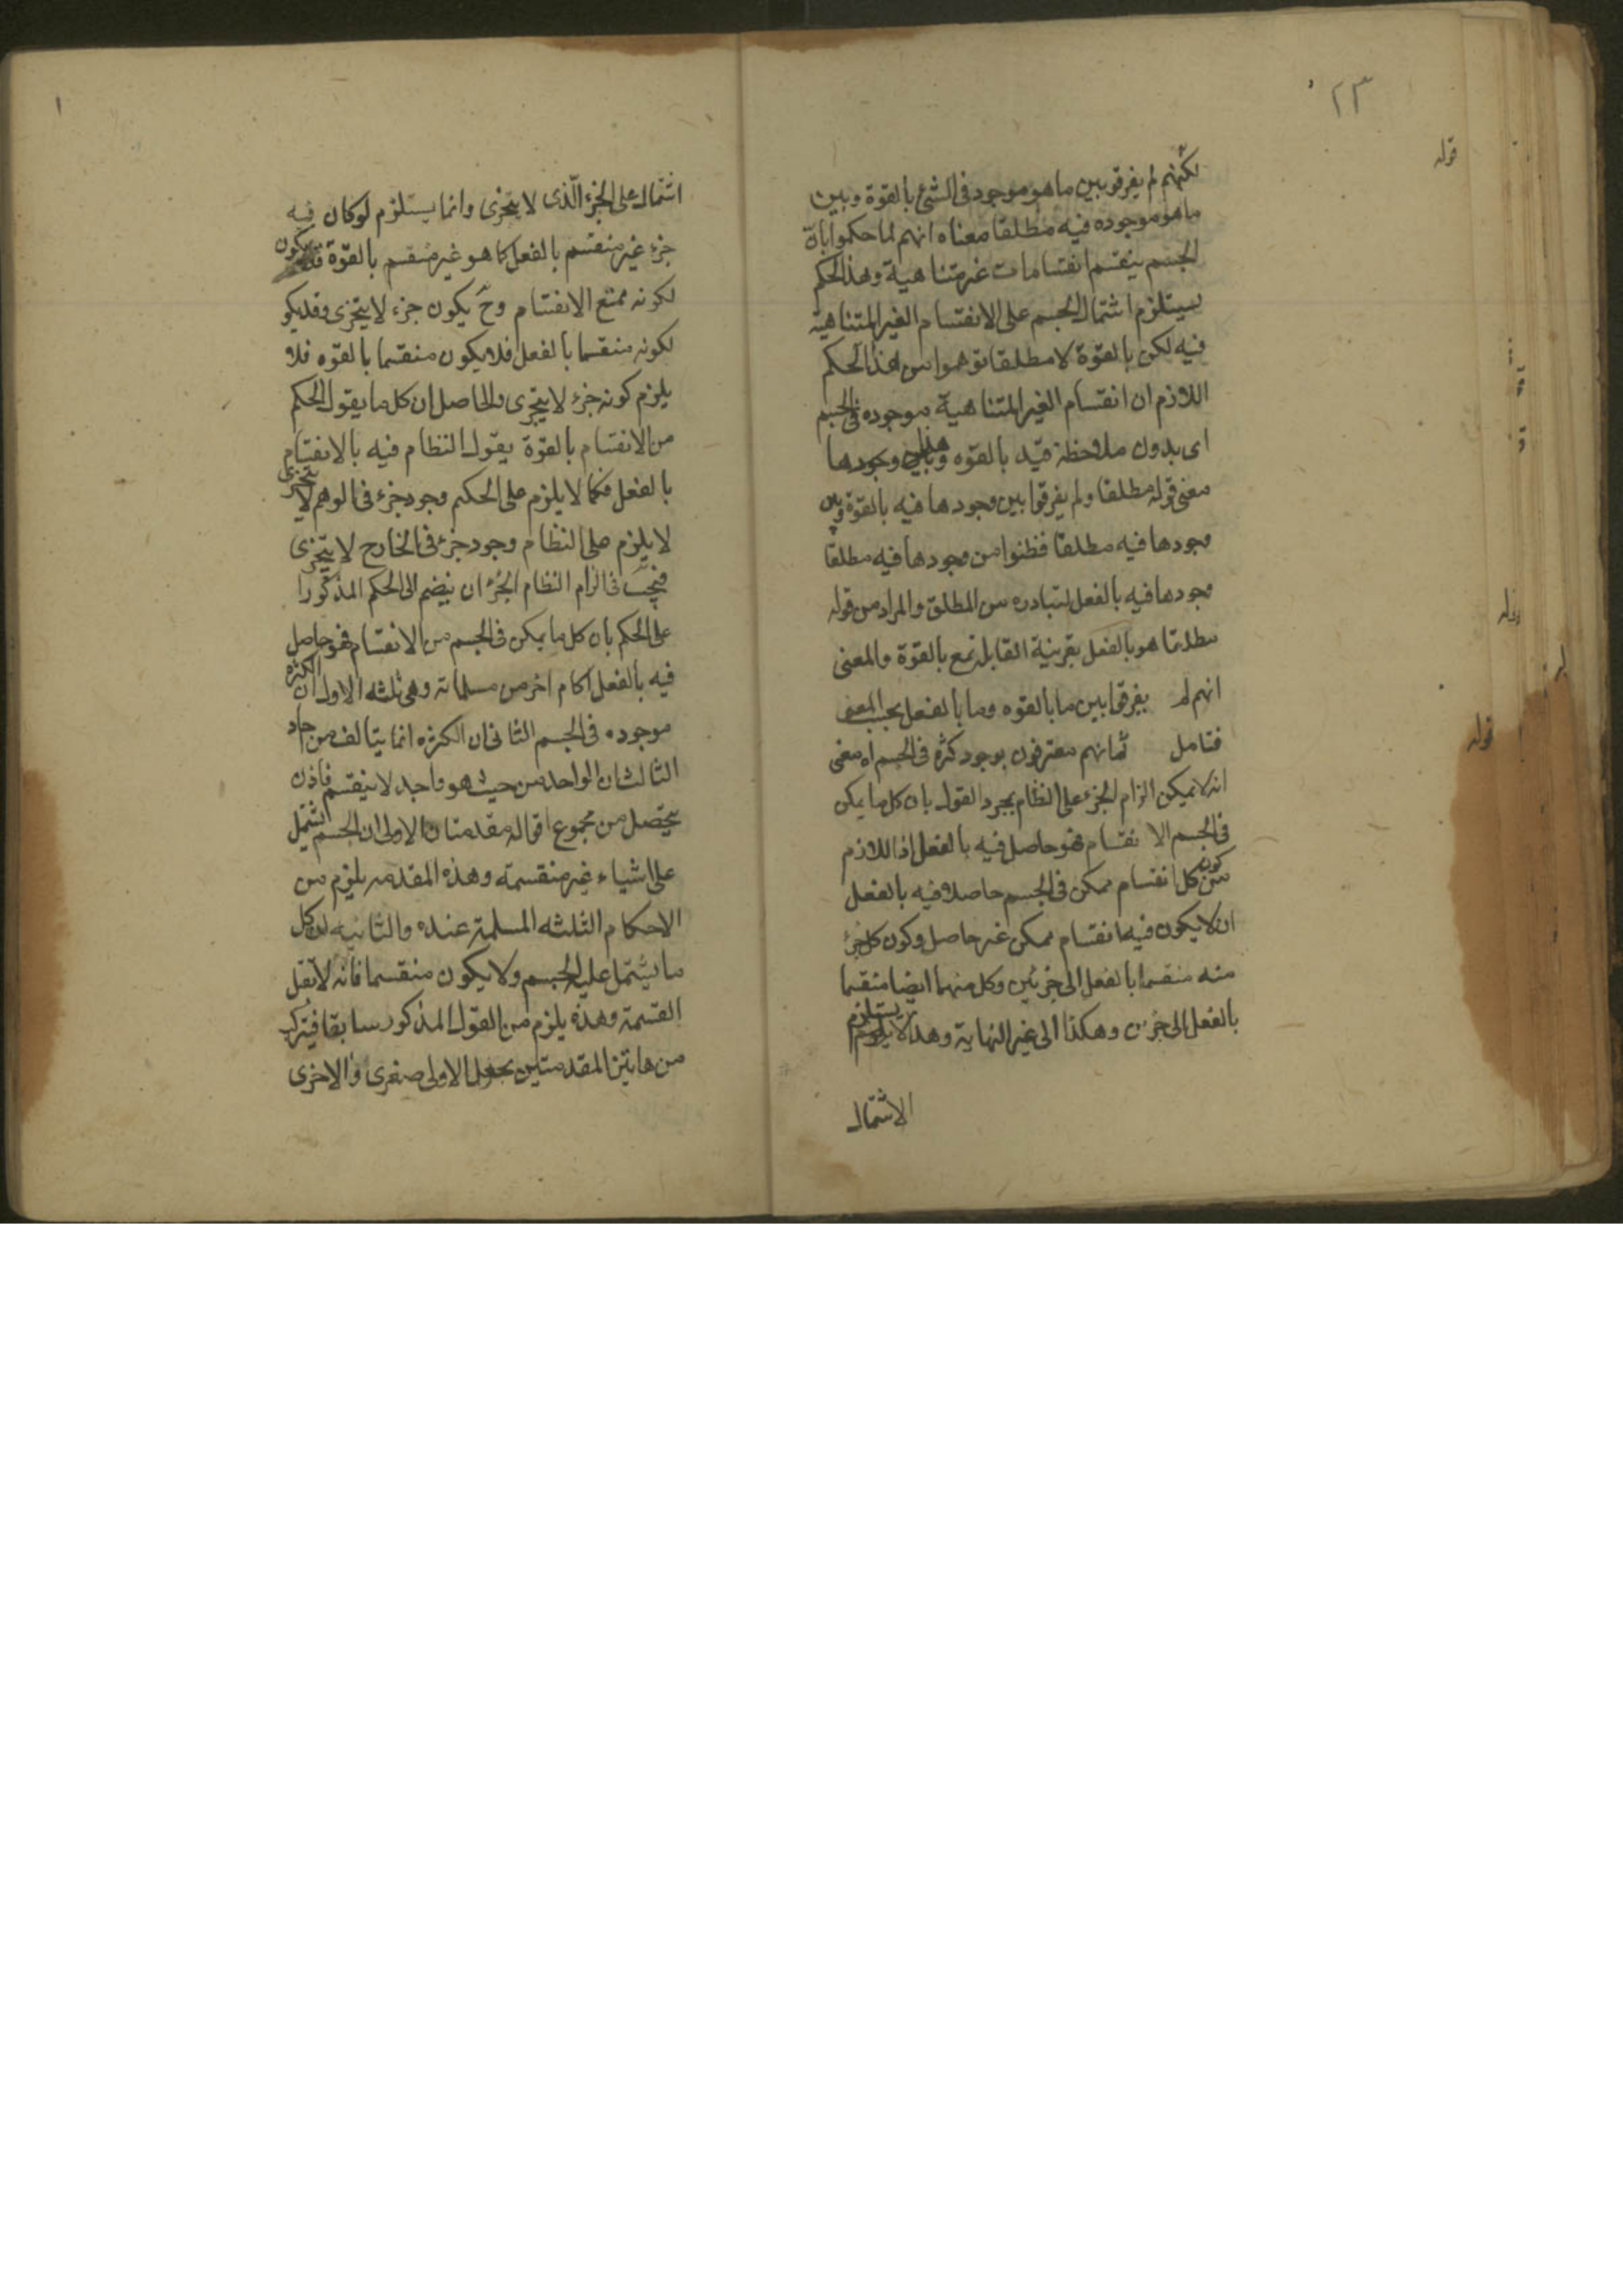 ٢٣
لكنهم لم يفرقو بين ما هو موجود فى الشئ بالقوة وبين
ما هو موجوده فيه مطلقا معناه انهم لما حكموا بان
الجسم ينقسم انقسامات غير متناهية وهذا الحكم
يستلزم اشتمال الجسم على الانقسام الغير المتناهية
فيه لكن بالقوة لا مطلقا توهموا من هذا الحكم
اللازم ان انقسام الغير المتناهية موجوده فى الجسم
اى بدون ملاحظة قيد بالقوه وجودها
معنى قوله مطلقا ولم يفرقوا بين وجودها فيه بالقوة وبين
وجودها فيه مطلقا فظنوا من وجودها فيه مطلقا
وجودها فيه بالفعل لتبادره من المطلق والمراد من قوله
مطلقا هو بالفعل بقرينة القابلة مع بالقوة والمعنى
انهم لم يفرقوا بين ما بالقوه وما بالفعل بحسب المعنى
فتامل ثم انهم معترفون بوجود كثرة فى الجسم اه معنى
انه لا يمكن الزام الجزء على النظام بمجرد القول بان كل ما يمكن
فى الجسم الا نقسام فهو حاصل فيه بالفعل اذ اللازم
من كون كل انقسام ممكن فى الجسم حاصلا فيه بالفعل
ان لا يكون فيه انقسام ممكن غير حاصل وكون كل جزء
منه منقسما بالفعل الى جزئين وكل منهما ايضا منقسما
بالفعل الى جزئين وهكذا الى غير النهاية وهذا لا يستلزم
الاشتمال
قوله
قوله
قوله
اشتمال على الجزء الّذى لا يتجزى وانما يستلزم لو كان فيه
جزء غير منقسم بالفعل كما هو غير منقسم بالقوة قد يكون
لكونه ممتنع الانقسام وح يكون جزء لا يتجزى وقد يكو
لكونه منقسما بالفعل فلا يكون منقسما بالقوه فلا
يلزم كونه جزء لا يتجزى والحاصل ان كل ما يقول الحكم
من الانقسام بالقوة يقول النظام فيه بالانقسام
بالفعل فكما لا يلزم على الحكم وجود جزء فى الوهم لا يتجزى
لا يلزم على النظام وجود جزء فى الخارج لا يتجزى
فيجب فى الزام النظام الجزء ان ينضم الى الحكم المذكور ا
على الحكم بان كل ما يمكن فى الجسم من الانقسام فهو حاصل
فيه بالفعل احكام اخر من مسلماته وهى ثلثه الاول ان الكثره
موجوده فى الجسم الثانى ان الكثره انما يتالف من احاد
الثالث ان الواحد من حيث هو واحد لا ينقسم فاذن
يتحصل من مجموع اقواله مقدمتان الاولى ان الجسم يشتمل
على اشياء غير منقسمة وهذه المقدمه يلزم من
الاحكام الثلثه المسلمة عنده والثانيه ان كل
ما يشتمل عليه الجسم ولا يكون منقسما فانه لا يقبل
القسمة وهذه يلزم من القول المذكور سابقا فيتركب
من هاتين المقدمتين بجعل الاولى صغرى والاخرى